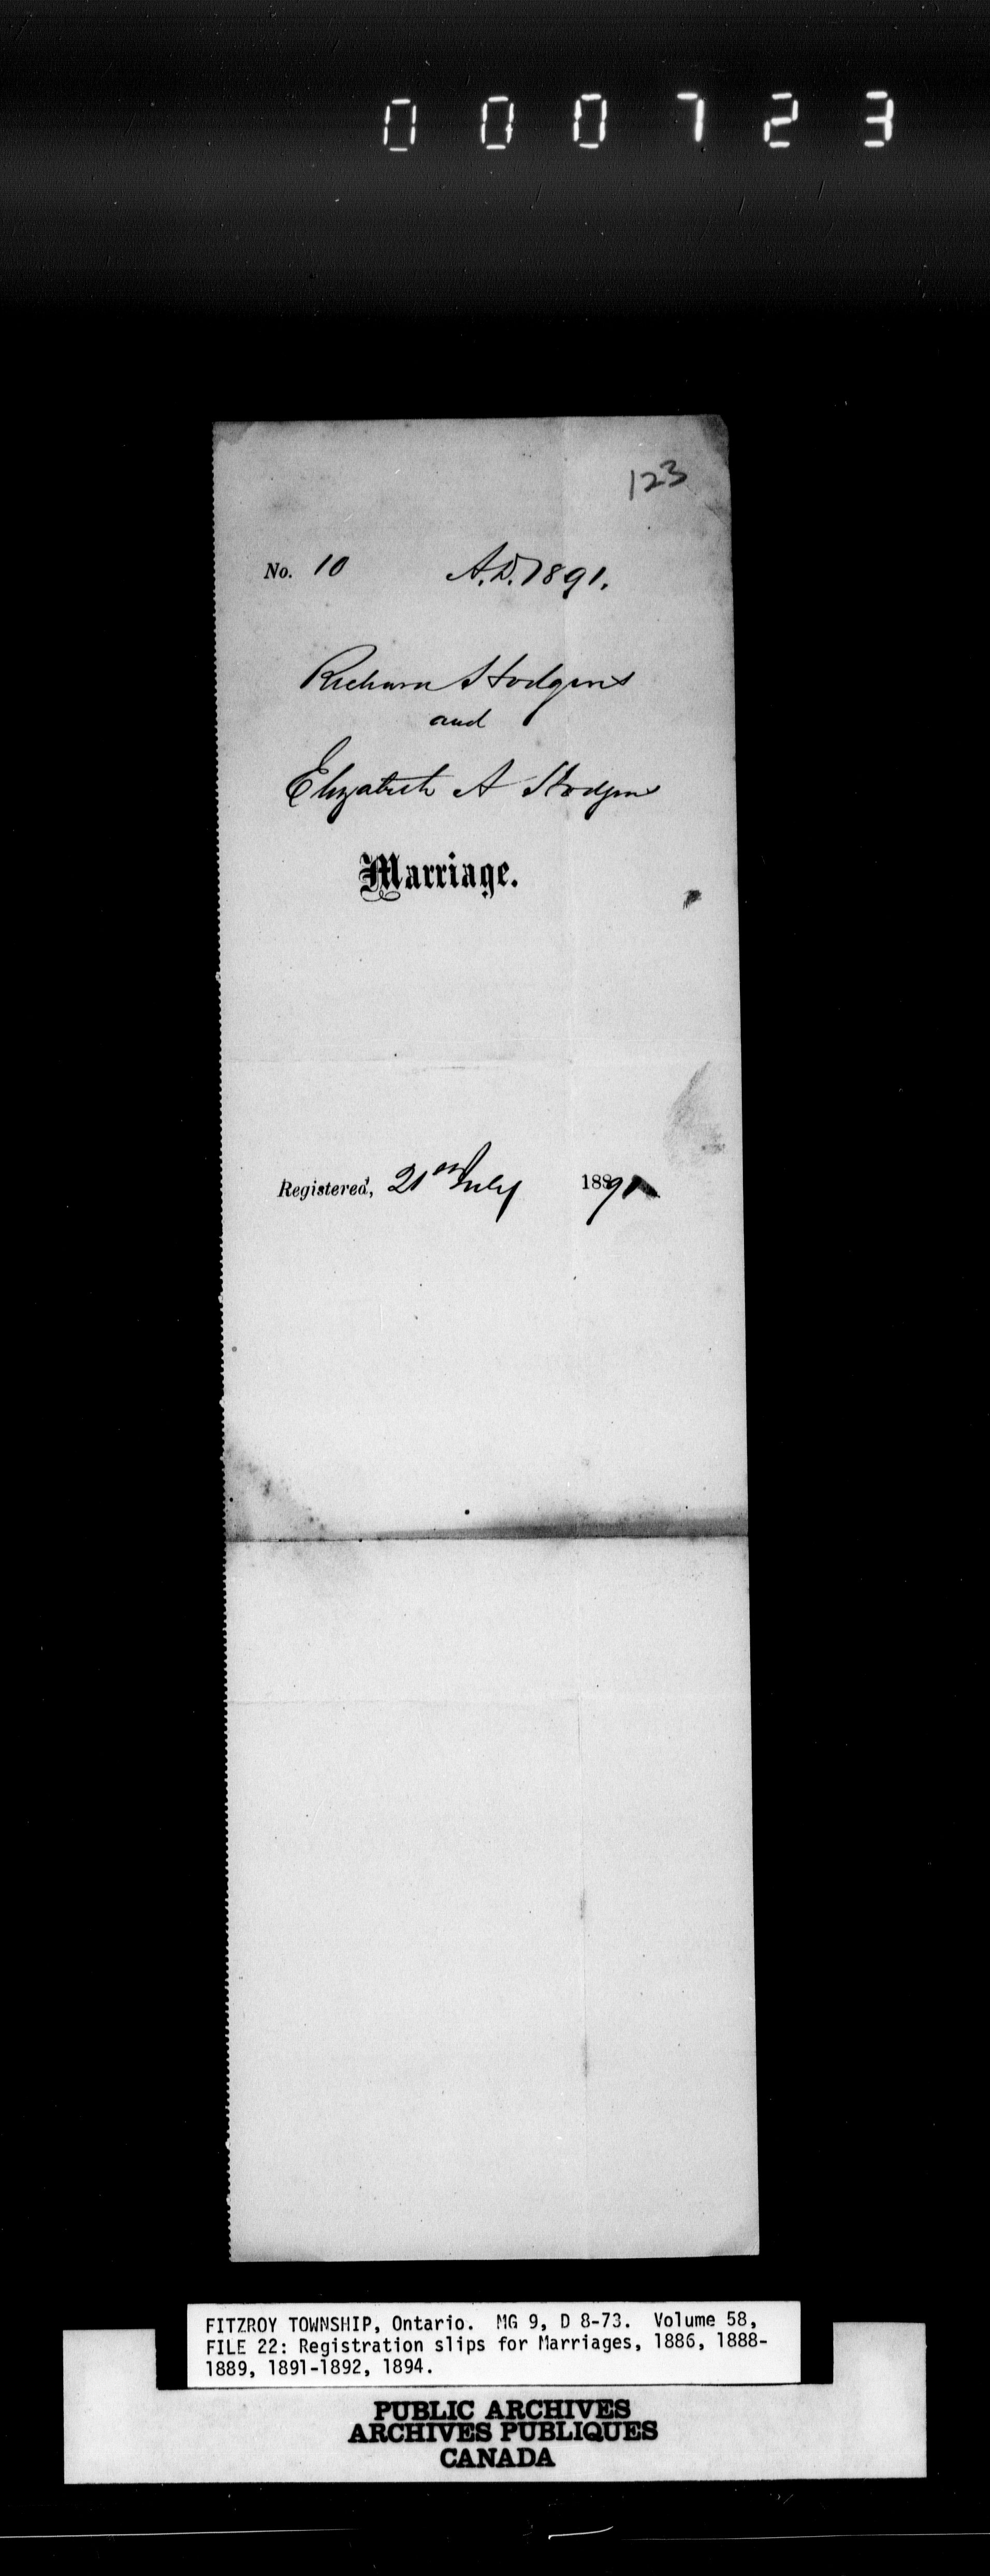 000723
123
No. 10 A.D. 1891.
Richard Hodgins
and
Elizabeth A Hodgins
Marriage.
Registered, 21st July 1891
FITZROY TOWNSHIP, Ontario. MG 9, D 8-73. Volume 58,
FILE 22: Registration slips for Marriages, 1886, 1888-
1889, 1891-1892, 1894.
PUBLIC ARCHIVES
ARCHIVES PUBLIQUES
CANADA